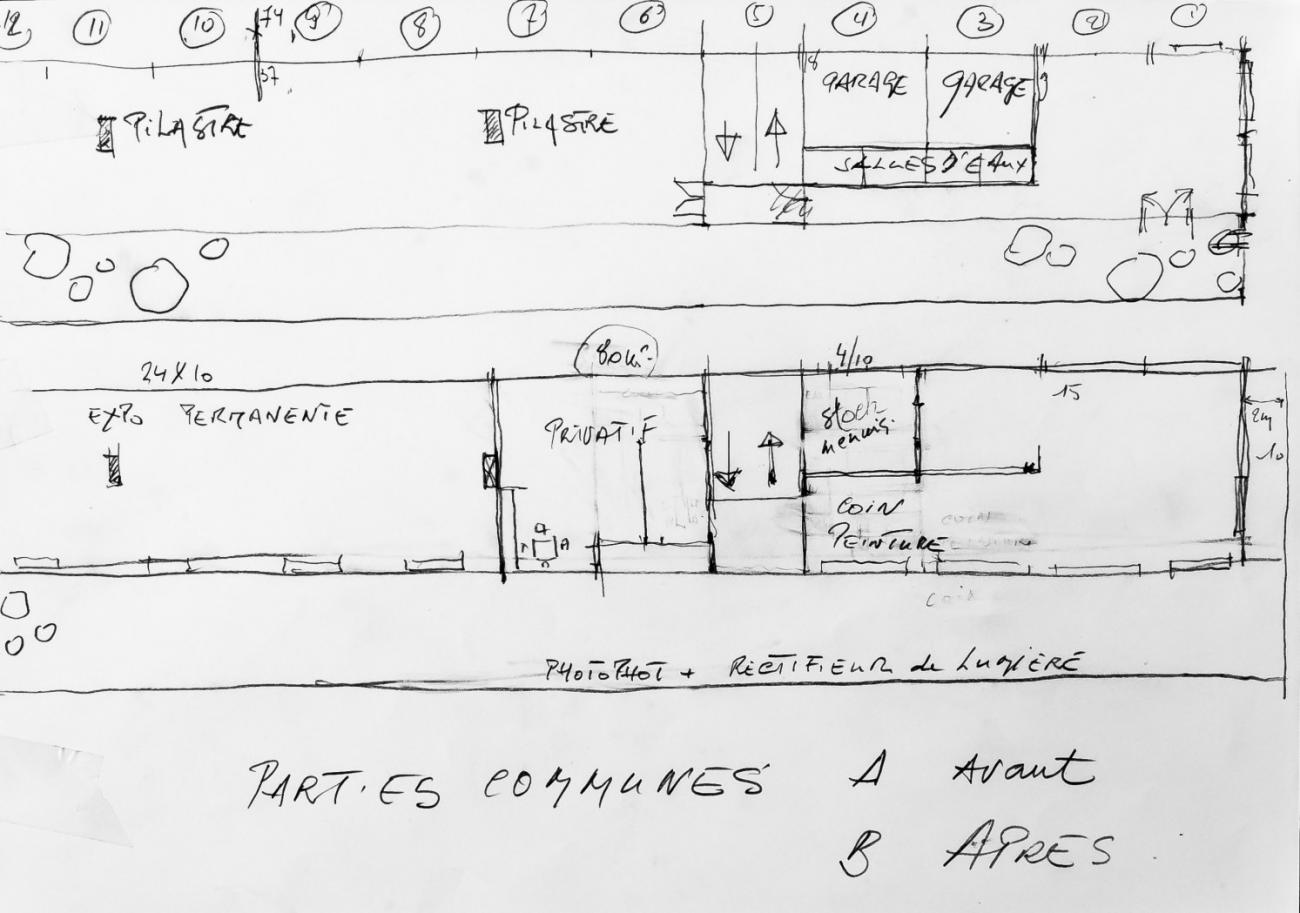 12 11 10 9 8 7 6 5 4 3 2 1
74
37
PILASTRE PILASTRE GARAGE GARAGE
SALLES D'EAUX
24 X 10
EXPO PERMANENTE
PRIVATIF
4/10
stock
menuis.
15
2m
10
COIN
PEINTURE
COIN
PHOTOPHOT + RECTIFIEUR de LUMIÈRE
PARTIES COMMUNES A Avant
B APRES